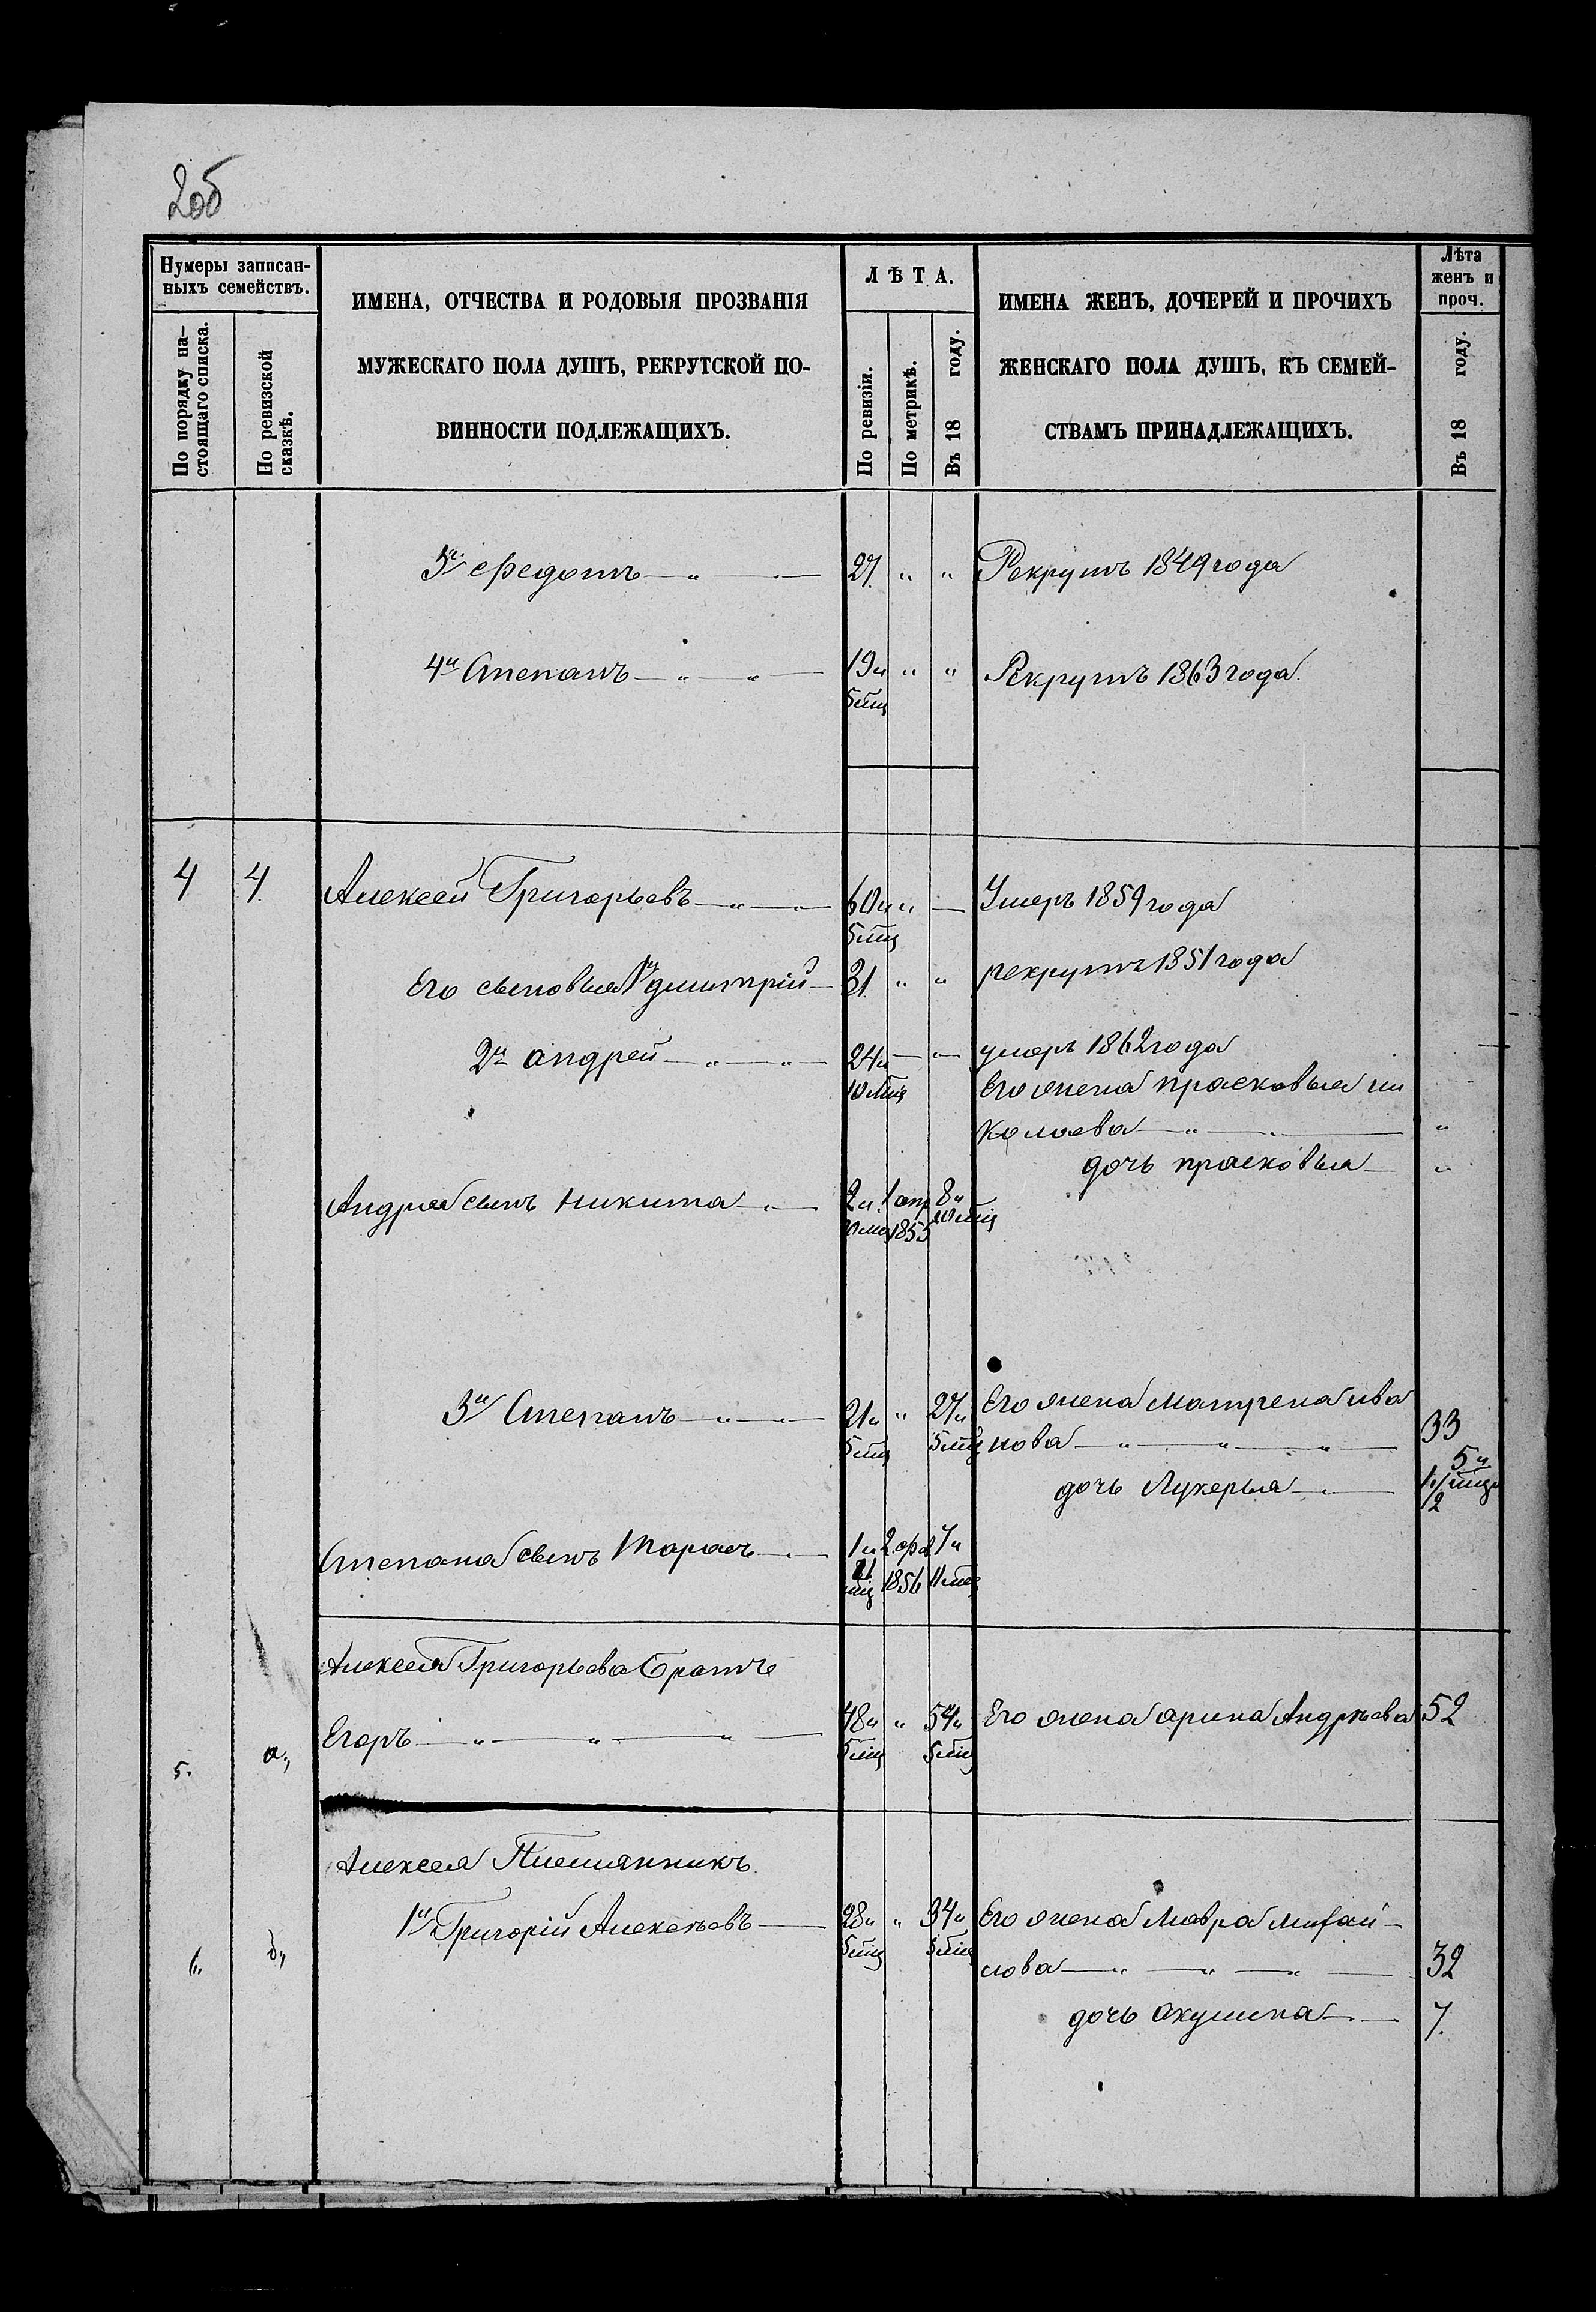 2об
Нумеры записан-
ныхъ семействъ.
По порядку на-
стоящаго списка.
По ревизской
сказкѣ.
ИМЕНА, ОТЧЕСТВА И РОДОВЫЯ ПРОЗВАНІЯ
МУЖЕСКАГО ПОЛА ДУШЪ, РЕКРУТСКОЙ ПО-
ВИННОСТИ ПОДЛЕЖАЩИХЪ.
ЛѢТА.
По ревизіи.
По метрикѣ.
Въ 18 году.
ИМЕНА ЖЕНЪ, ДОЧЕРЕЙ И ПРОЧИХЪ
ЖЕНСКАГО ПОЛА ДУШЪ, КЪ СЕМЕЙ-
СТВАМЪ ПРИНАДЛЕЖАЩИХЪ.
Лѣта
женъ и
проч.
Въ 18 году.
3й Федотъ — „ — 27 „ „ Рекрутъ 1849 года
4й Степанъ — „ — „ — 19 и „ „ Рекрутъ 1863 года
5 мц
4 4 Алексей Григорьевъ — „ — 60 и „ — Умеръ 1859 года
5 мц
Его сыновья 1й дмитрій — 31 „ „ рекрутъ 1851 года
2й андрей — „ — „ — 24 и — „ — умеръ 1862 года
10 мц Его жена прасковья ни
колаева — „ — „
дочь прасковья — „
Андрея сынъ никита — 2 и 1 апр 8 и
10 мц 1855 10 мц
3й Степанъ — „ — „ — 21 и „ 27 и Его жена матрена ива
5 мц 5 мц нова — „ — „ — „ — 33
дочь Лукерья — 5 и
1/2 мц
Степана сынъ Тарасъ — 1 и 2 фев 7 и
мц 1856 11 мц
Алексея Григорьева братъ
5. а„ Егоръ — „ — „ — „ — 48 и „ 54 и Его жена арина Андрѣева 52
5 мц 5 мц
Алексея Племянникъ
6„ б„ 1й Григорій Алексѣевъ — 28 и „ 34 и Его жена Мавра михай-
5 мц 5 мц лова — „ — „ — „ — 32
дочь акулина — 7.